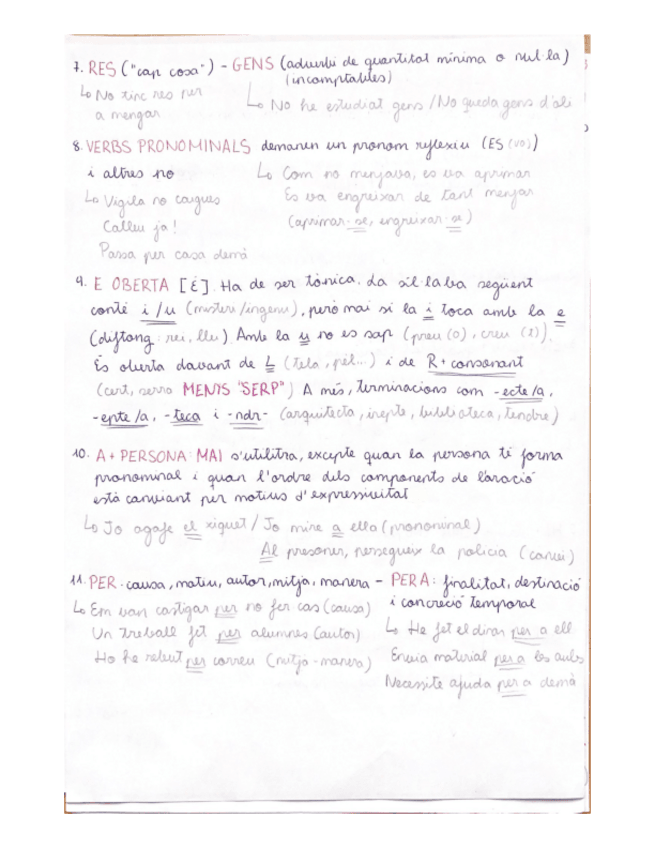 7. RES ("cap cosa") - GENS (adverbi de quantitat mínima o nul·la)
(incomptables)
↳ No tinc res per
a menjar
↳ No he estudiat gens / No queda gens d'oli
8. VERBS PRONOMINALS demanen un pronom reflexiu (ES (vo))
i altres no
↳ Com no menjava, es va aprimar
Es va engreixar de tant menjar
(aprimar-se, engreixar-se)
↳ Vigila no caigues
Calleu ja!
Passa per casa demà
9. E OBERTA [È]. Ha de ser tònica. La síl·laba següent
conté i/u (misteri/ingenu), però mai si la i toca amb la e
(diftong: rei, lleu) Amb la u no es sap (preu (o), creu (t)).
És oberta davant de L (tela, pèl...) i de R + consonant
(cert, serra MENYS "SERP") A més, terminacions com -ecte/a,
-epte/a, -teca i -ndr- (arquitecta, inepte, biblioteca, tendre)
10. A + PERSONA: MAI s'utilitza, excepte quan la persona té forma
pronominal i quan l'ordre dels components de l'oració
està canviant per motius d'expressivitat
↳ Jo agafe el xiquet / Jo mire a ella (pronominal)
Al presoner, persegueix la policia (canvi)
11. PER: causa, motiu, autor, mitjà, manera - PER A: finalitat, destinació
i concreció temporal
↳ Em van castigar per no fer cas (causa)
Un treball fet per alumnes (autor)
Ho he rebut per correu (mitjà-manera)
↳ He fet el dinar per a ell
Envia material per a les aules
Necessite ajuda per a demà